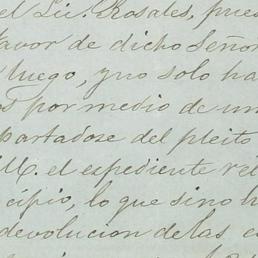 el Lic. Rosales, pues
favor de dicho Señor
luego, y no solo ha
por medio de un
partadose del pleito
M. el expediente re
cipio, lo que sino h
devolucion de las c